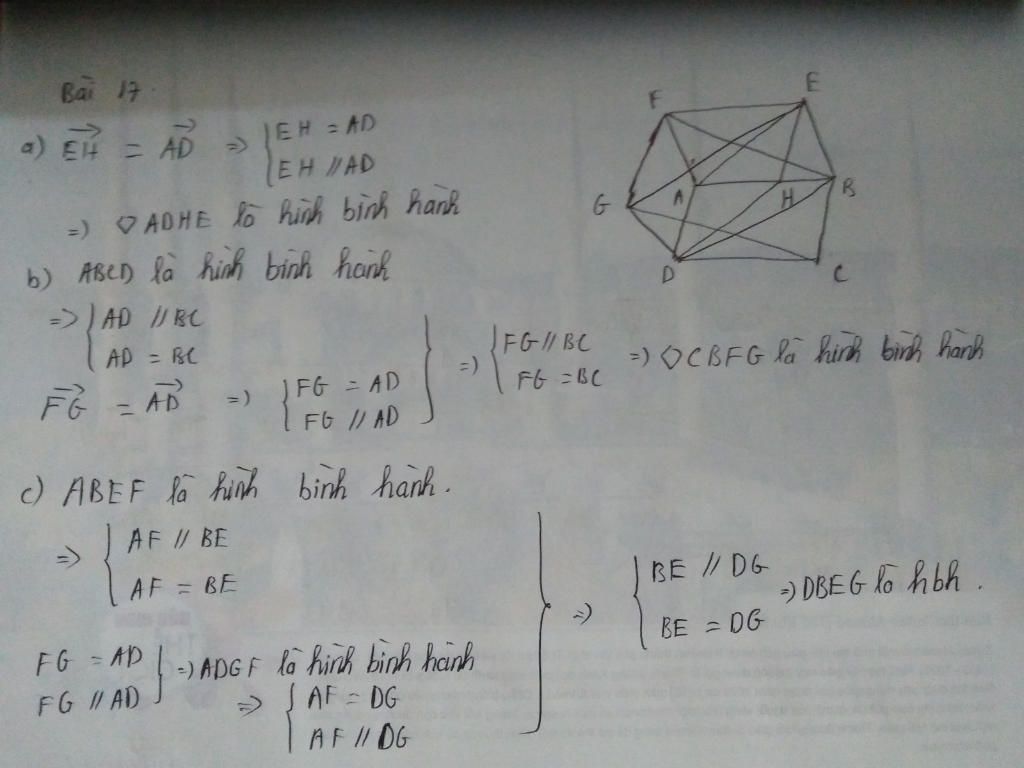 Bài 17.
a) EH = AD => { EH = AD
EH // AD
=> ◇ ADHE là hình bình hành
b) ABCD là hình bình hành
=> { AD // BC
AD = BC
FG = AD => { FG = AD
FG // AD
=> { FG // BC => ◇ CBFG là hình bình hành
FG = BC
c) ABEF là hình bình hành.
=> { AF // BE
AF = BE
FG = AD
FG // AD } => ADGF là hình bình hành
=> { AF = DG
AF // DG
=> { BE // DG => DBEG là hbh.
BE = DG
F
E
G
A
H
B
D
C